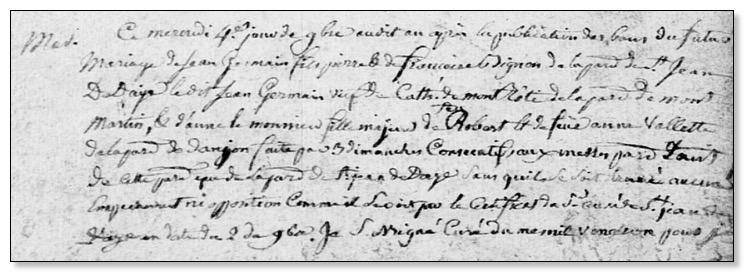 Mad. Ce mercredi 4.e jour de 9bre audit an après la publication des bans du futur
Mariage de Jean Germain fils pierre & de francoise le dignon de la par. de St Jean
De Daye le dit Jean Germain veuf de Cath. de mont de la par. de mont
Martin, & d'anne le monnier fille majeure de Robert & de feüe anne Vallette
de la par. de dangon faite par 3 dimanches Consecutifs aux messes par. Tant
de cette par. que de la par. de St jean de Daye sans qu'il se soit trouvé aucun
Empechement ni opposition Comme il se voit par le Certificat du Sr curé de St jean de
Daye en date du 2 de 9bre. Je S. Curé du mesnil